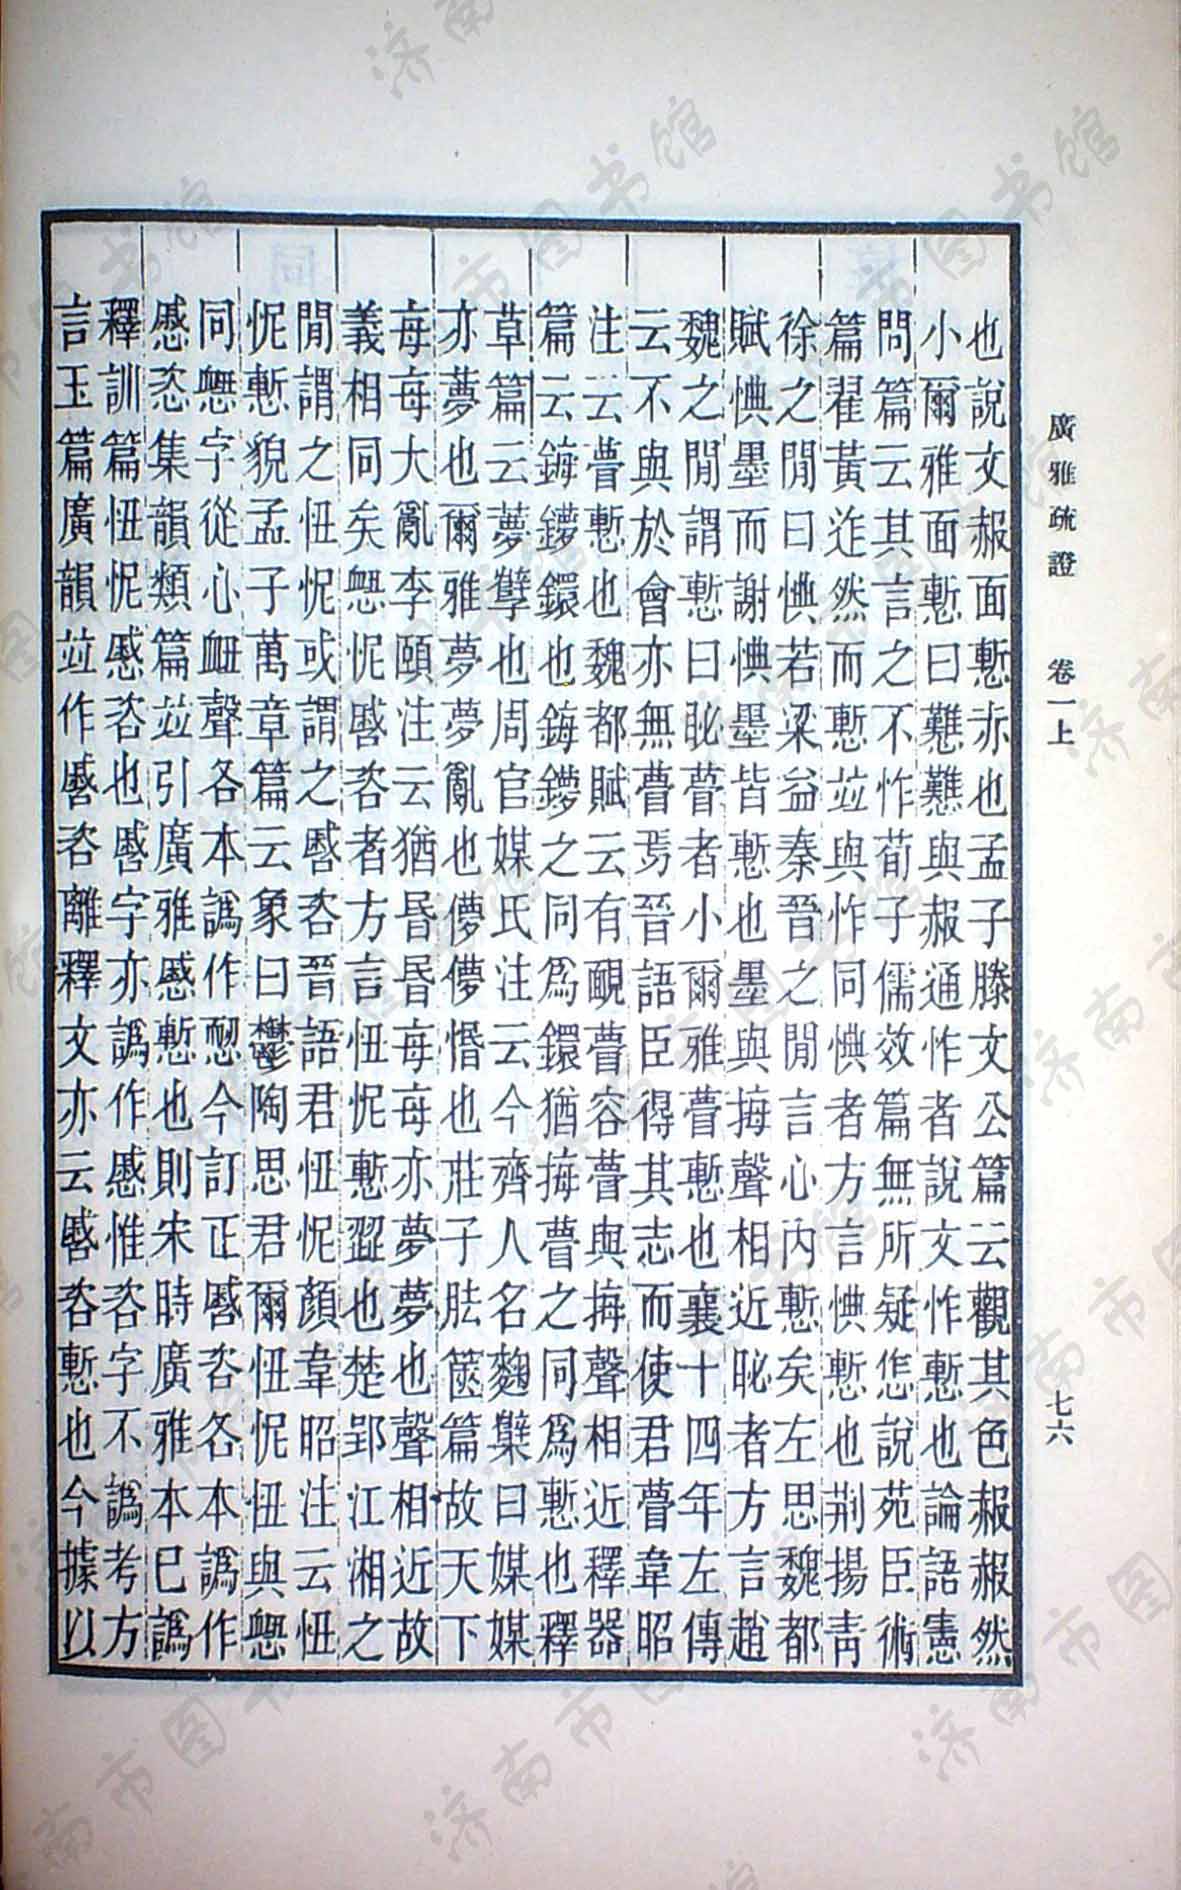 廣雅疏證 卷一上 七六
也說文赧面慙赤也孟子滕文公篇云觀其色赧赧然
小爾雅面慙曰戁戁與赧通怍者說文怍慙也論語憲
問篇云其言之不怍荀子儒效篇無所疑怎說苑臣術
篇翟黃迮然而慙竝與怍同㥏者方言㥏慙也荆揚青
徐之閒曰㥏若梁益秦晉之閒言心內慙矣左思魏都
賦㥏墨而謝㥏墨皆慙也墨與挴聲相近恥者方言趙
魏之閒謂慙曰恥瞢者小爾雅瞢慙也襄十四年左傳
云不與於會亦無瞢焉晉語臣得其志而使君瞢韋昭
注云瞢慙也魏都賦云有靦瞢容瞢與挴聲相近釋器
篇云鋂鑼鐶也鋂鑼之同爲鐶猶挴瞢之同爲慙也釋
草篇云夢孳也周官媒氏注云今齊人名麴䴷曰媒媒
亦夢也爾雅夢夢亂也儚儚惛也莊子胠篋篇故天下
每每大亂李頤注云猶昬昬每每亦夢夢也聲相近故
義相同矣㦬怩䁥咨者方言忸怩慙歰也楚郢江湘之
閒謂之忸怩或謂之䁥咨晉語君忸怩顏韋昭注云忸
怩慙貌孟子萬章篇云象曰鬱陶思君爾忸怩忸與㦬
同㦬字從心衄聲各本譌作㥾今訂正慼咨各本譌作
慼恣集韻類篇竝引廣雅慼慙也則宋時廣雅本已譌
釋訓篇忸怩慼咨也慼字亦譌作慼惟咨字不譌考方
言玉篇廣韻竝作䁥咨離釋文亦云䁥咨慙也今據以